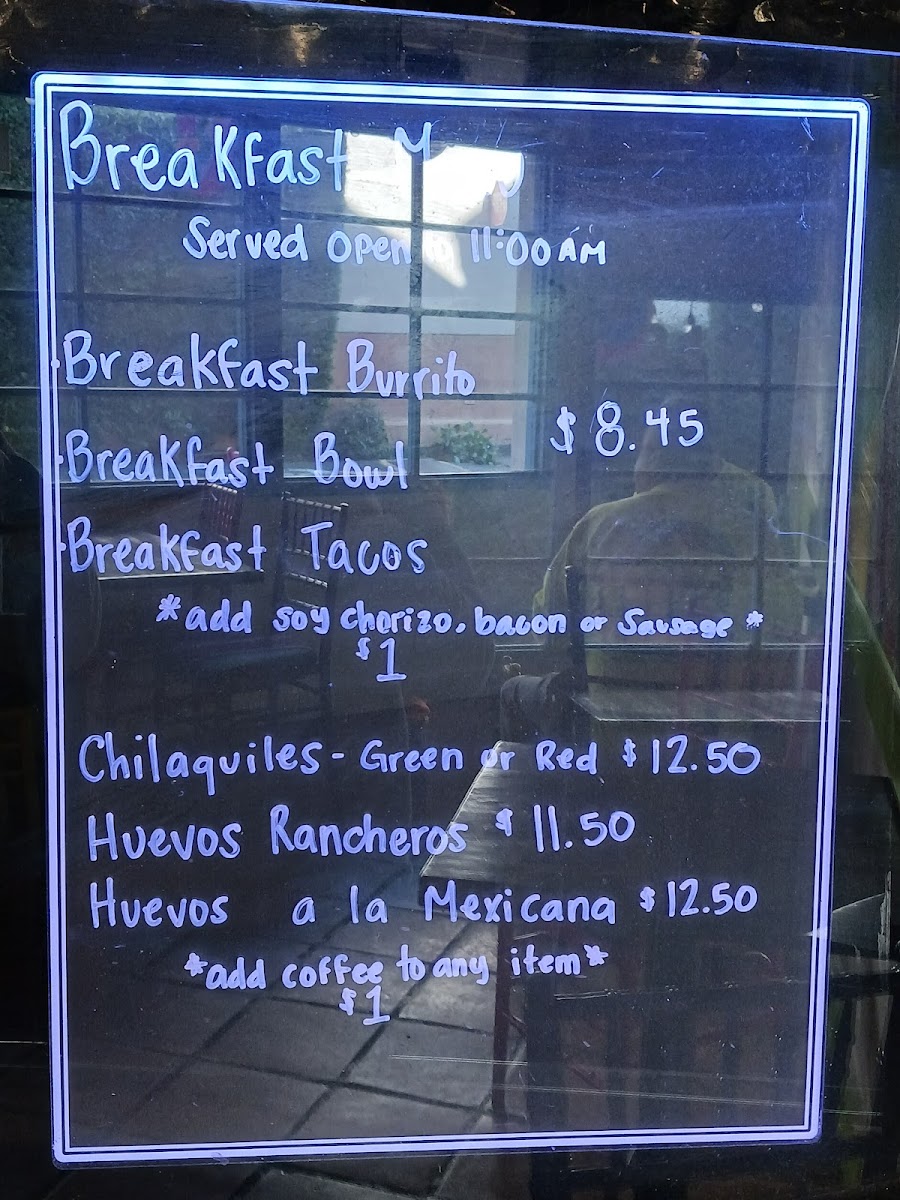 Breakfast
Served open 11:00 AM
Breakfast Burrito
$8.45
Breakfast Bowl
Breakfast Tacos
*add soy chorizo, bacon or Sausage*
$1
Chilaquiles - Green or Red $12.50
Huevos Rancheros $11.50
Huevos a la Mexicana $12.50
*add coffee to any item*
$1